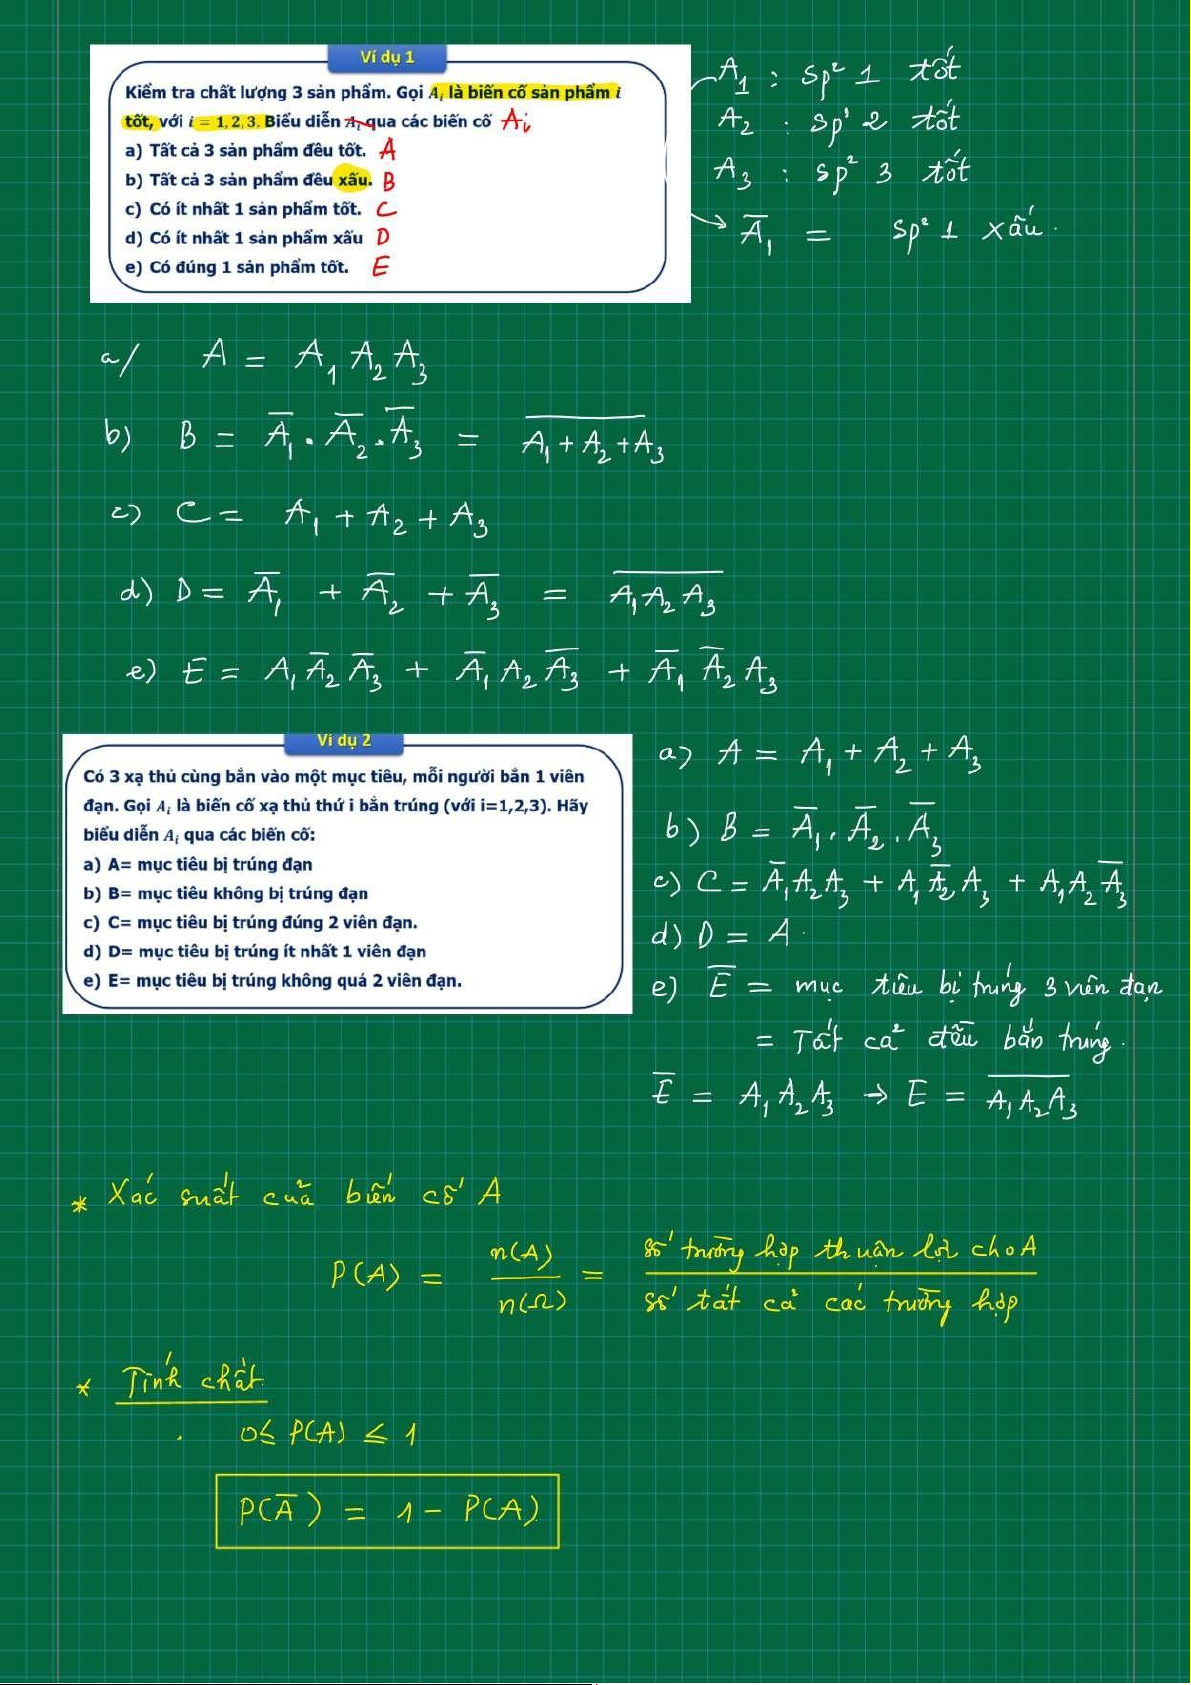 Ví dụ 1
Kiểm tra chất lượng 3 sản phẩm. Gọi Aᵢ là biến cố sản phẩm i
tốt, với i = 1, 2, 3. Biểu diễn Aᵢ qua các biến cố Ai
a) Tất cả 3 sản phẩm đều tốt. A
b) Tất cả 3 sản phẩm đều xấu. B
c) Có ít nhất 1 sản phẩm tốt. C
d) Có ít nhất 1 sản phẩm xấu D
e) Có đúng 1 sản phẩm tốt. E
A₁ : sp² 1 tốt
A₂ : sp² 2 tốt
A₃ : sp² 3 tốt
A̅₁ = sp² 1 xấu.
a/ A = A₁ A₂ A₃
b) B = A̅₁ . A̅₂ . A̅₃ = \overline{A₁ + A₂ + A₃}
c) C = A₁ + A₂ + A₃
d) D = A̅₁ + A̅₂ + A̅₃ = \overline{A₁ A₂ A₃}
e) E = A₁ A̅₂ A̅₃ + A̅₁ A₂ A̅₃ + A̅₁ A̅₂ A₃
Ví dụ 2
Có 3 xạ thủ cùng bắn vào một mục tiêu, mỗi người bắn 1 viên
đạn. Gọi Aᵢ là biến cố xạ thủ thứ i bắn trúng (với i=1,2,3). Hãy
biểu diễn Aᵢ qua các biến cố:
a) A= mục tiêu bị trúng đạn
b) B= mục tiêu không bị trúng đạn
c) C= mục tiêu bị trúng đúng 2 viên đạn.
d) D= mục tiêu bị trúng ít nhất 1 viên đạn
e) E= mục tiêu bị trúng không quá 2 viên đạn.
a) A = A₁ + A₂ + A₃
b) B = A̅₁ . A̅₂ . A̅₃
c) C = A̅₁ A₂ A₃ + A₁ A̅₂ A₃ + A₁ A₂ A̅₃
d) D = A.
e) E̅ = mục tiêu bị trúng 3 viên đạn
= Tất cả đều bắn trúng.
E̅ = A₁ A₂ A₃ → E = \overline{A₁ A₂ A₃}
* Xác suất của biến cố A
P(A) = n(A)/n(Ω) = số trường hợp thuận lợi cho A / số tất cả các trường hợp
* Tính chất
. 0 ≤ P(A) ≤ 1
P(A̅) = 1 - P(A)